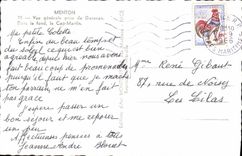 MENTON
Vue générale prise de Garavan
Dans le fond, le Cap-Martin
Ma petite Colette
Enfin du beau temps et
du soleil, ce qui est bien
agréable, après hier nous avons
fait beaucoup de promenades
puisqu'il faut que je marche
ton parrain ne m'en fait
pas grâce
J'espère passer un
bon séjour et me reposer
un peu
Affectueuses pensées à tous
Jeanne André
Mme René Gibaut
87, rue de Noisy
Les Lilas